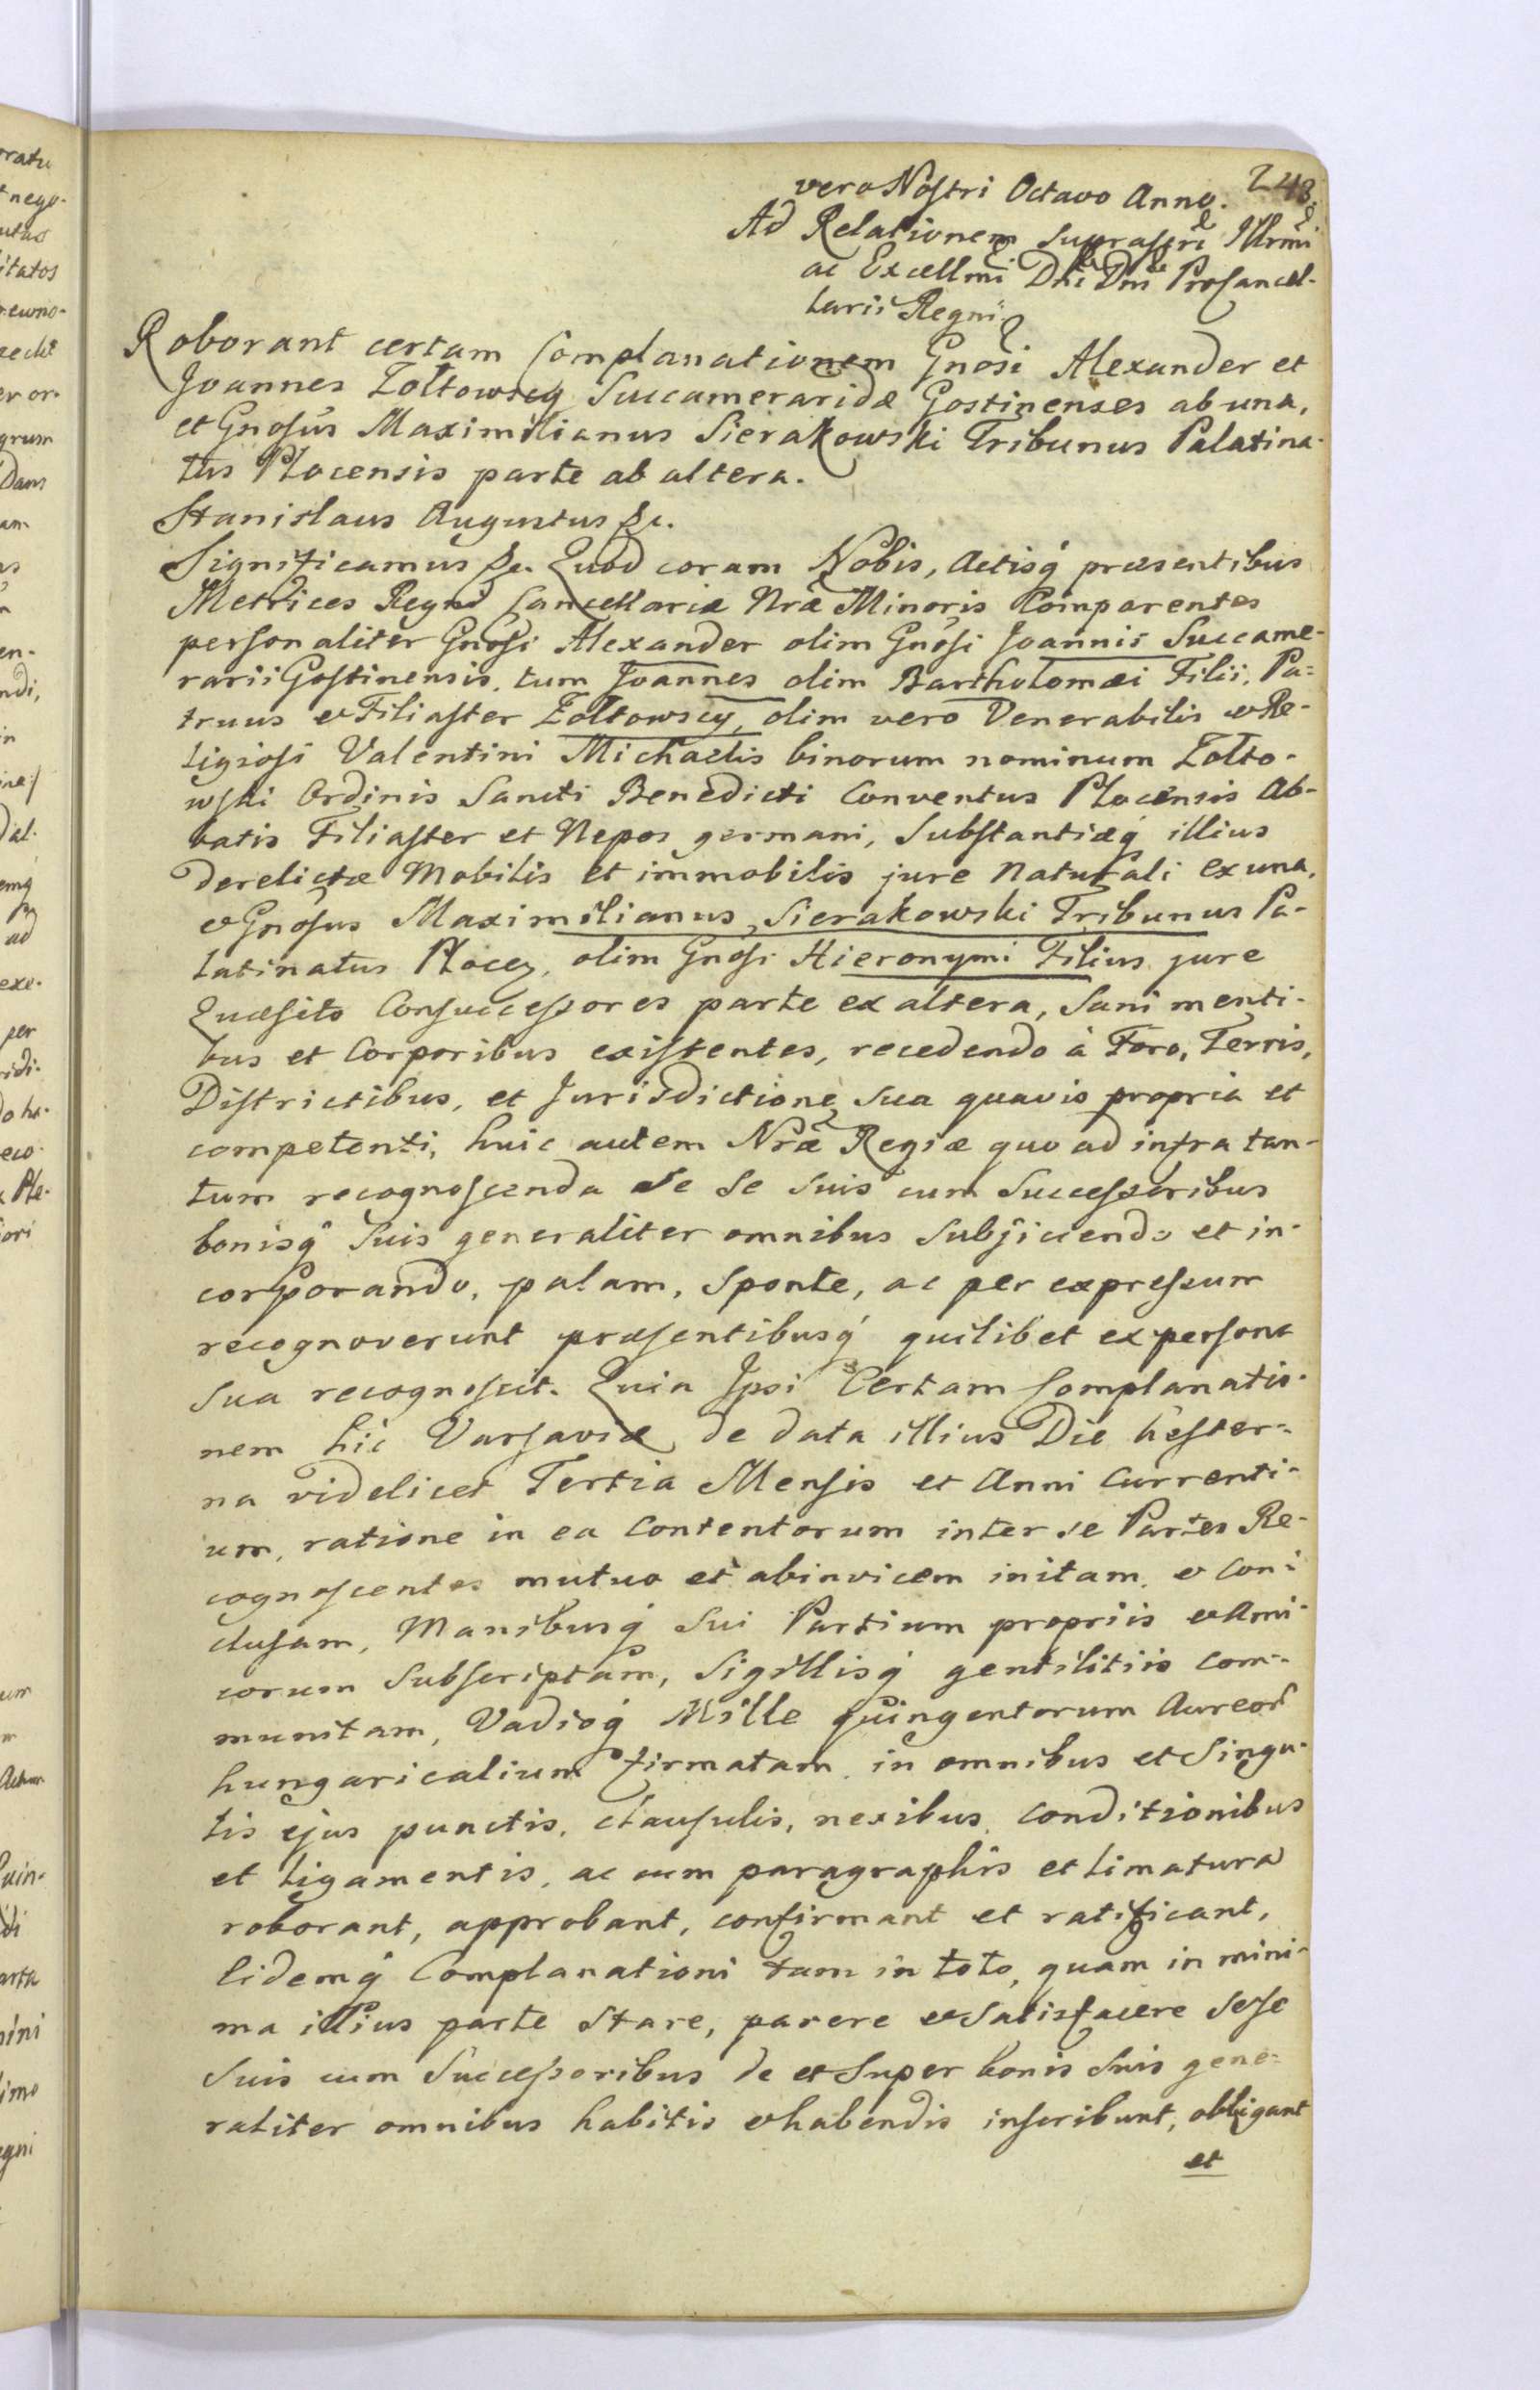 248.
vero Nostri Octavo Anno.
Ad Relationem Suprascri Illrmi
ac Excellmi Dni Dni Procancel-
larii Regni
Roborant certam Complanationem Gnosi Alexander et
Joannes Zołtowscy Succameraridæ Gostinenses ab una,
et Gnosus Maximilianus Sierakowski Tribunus Palatina-
tus Plocensis parte ab altera.
Stanislaus Augustus &c.
Significamus &c. Quod coram Nobis, Actisq́ præsentibus
Metrices Regni Cancellariæ Nræ Minoris Comparentes
personaliter Gnosi Alexander olim Gnosi Joannis Succame-
rarii Gostinensis, tum Joannes olim Bartholomæi Filii, Pa=
truus et Filiaster Zołtowscy, olim vero Venerabilis et Re-
ligiosi Valentini Michaelis binorum nominum Zołto-
wski Ordinis Sancti Benedicti Conventus Plocensis Ab-
batis Filiaster et Nepos germani, Substantiæq́ illius
derelictæ Mobilis et immobilis jure Naturali ex una,
et Gnosus Maximilianus Sierakowski Tribunus Pa-
latinatus Plocen, olim Gnosi Hieronymi Filius jure
Quæsito Consuccessores parte ex altera, Sani menti-
bus et Corporibus existentes, recedendo à Foro, Terris,
Districtibus, et Jurisdictione sua quavis propria et
competenti, huic autem Nræ Regiæ quo ad infra tan-
tum recognoscenda se se suis cum Successoribus
bonisq́ suis generaliter omnibus Subjiciendo et in-
corporando, palam, sponte, ac per expressum
recognoverunt præsentibusq́ quilibet ex persona
sua recognoscit. Quia Ipsi Certam Complanatio-
nem hic Varsaviæ de data illius Die hester-
na videlicet Tertia Mensis et Anni Currenti-
um, ratione in ea Contentorum inter se Partes Re-
cognoscentes mutuo et abinvicem initam, et Con-
clusam, Manibusq́ Sui Partium propriis et Ami-
corum Subscriptam, Sigillisq́ gentilitiis com-
munitam, Vadioq́ Mille quingentorum Aureor
hungaricalium firmatam, in omnibus et Singu-
lis ejus punctis, clausulis, nexibus, conditionibus
et ligamentis, ac cum paragraphis et limatura
roborant, approbant, confirmant et ratificant,
Eidemq́ Complanationi tam in toto, quam in mini-
ma illius parte stare, parere et Satisfacere sese
Suis cum Successoribus de et Super bonis Suis gene-
raliter omnibus habitis et habendis inscribunt, obligant
et